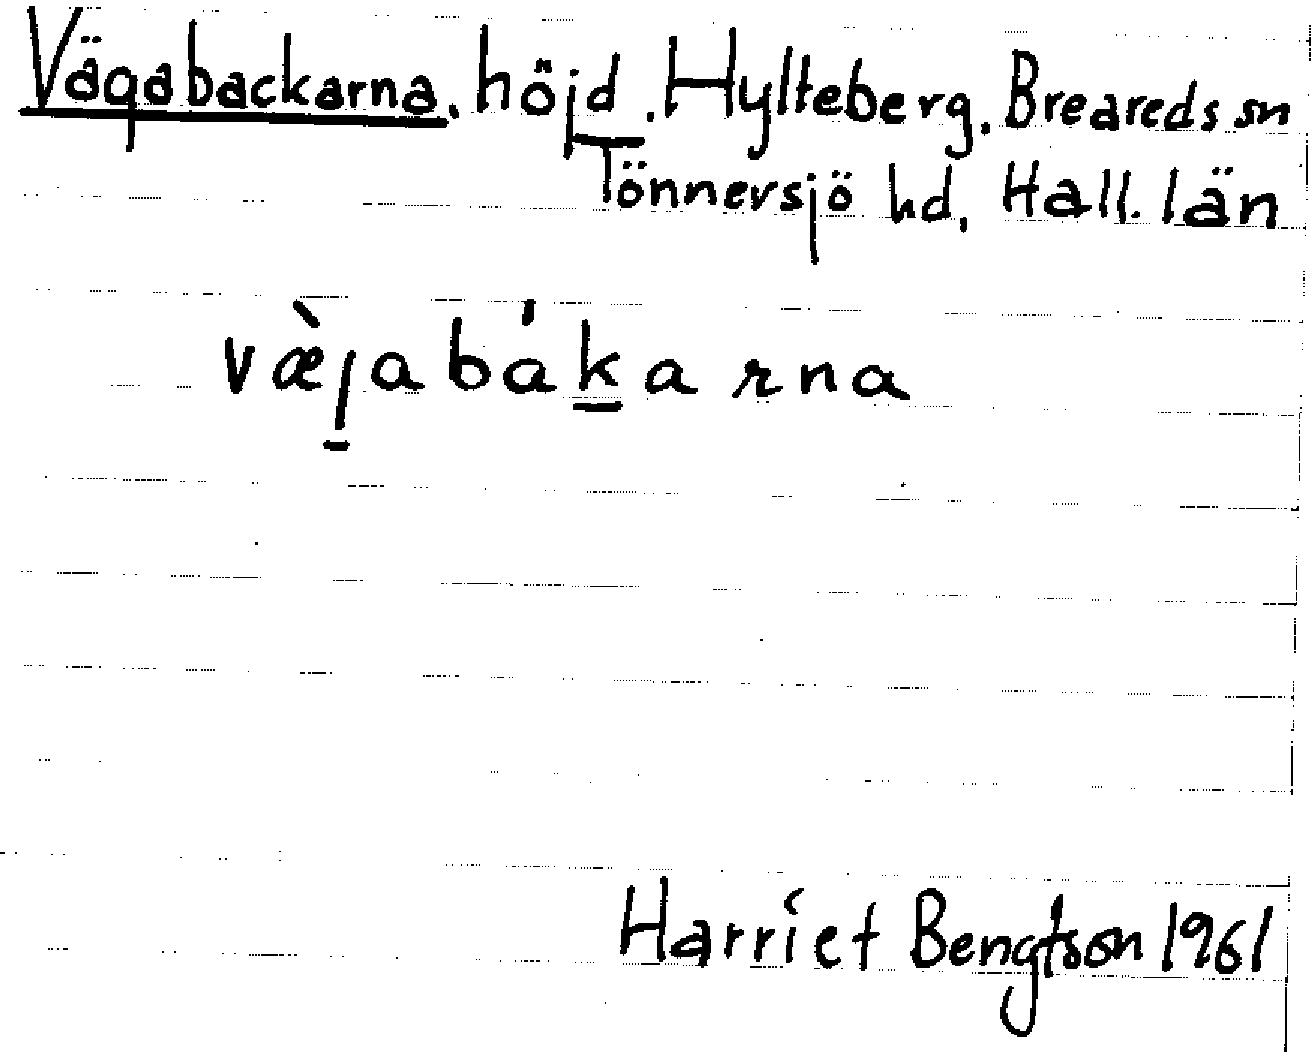 Vägabackarna, höjd, Hylteberg, Breareds sn
Tönnersjö hd, Hall. län
væ̀j̱abáḵarna
Harriet Bengtson 1961